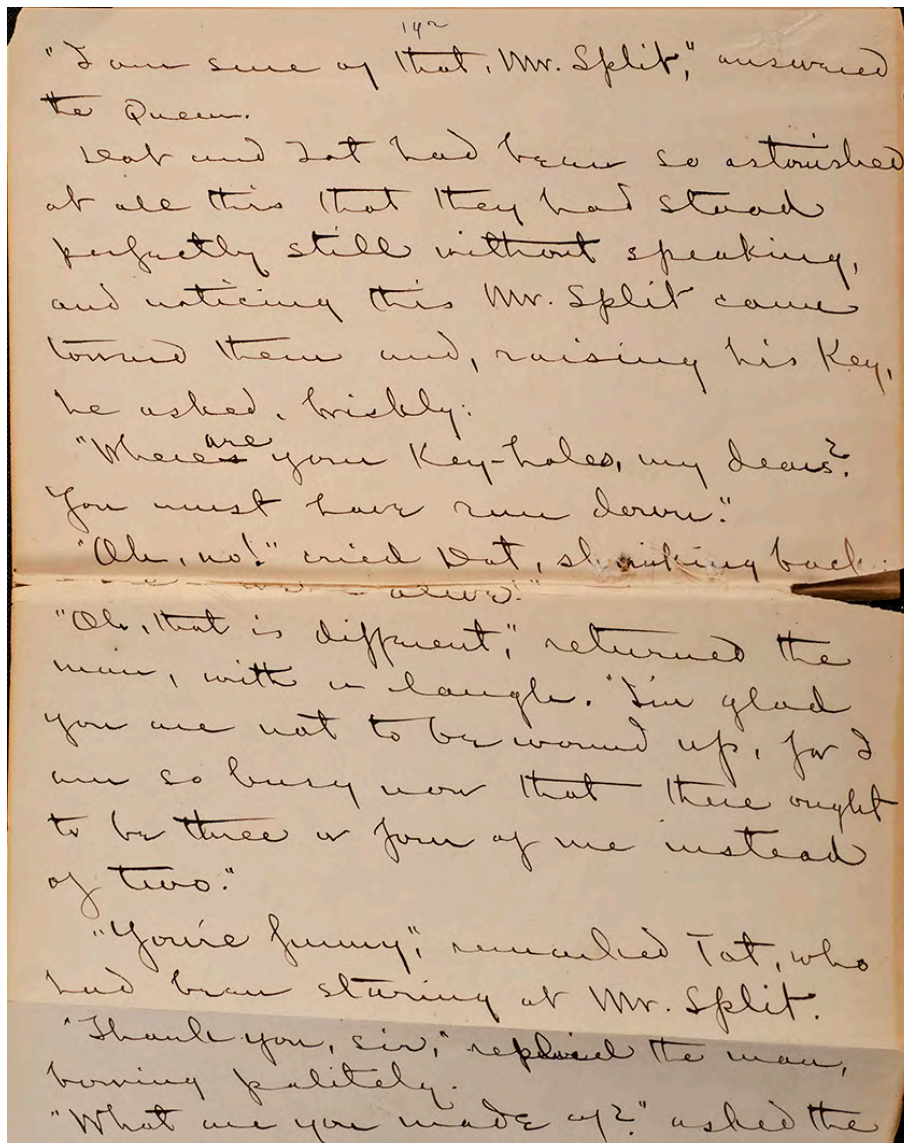 142
"I am sure of that, Mr. Split," answered
the Queen.
Dot and Tot had been so astonished
at all this that they had stood
perfectly still without speaking,
and noticing this Mr. Split came
toward them and, raising his Key,
he asked, briskly:
"Where are your Key-holes, my dears?
You must have run down."
"Oh, no!" cried Dot, shrinking back:
alive."
"Oh, that is different," returned the
man, with a laugh. "I'm glad
you are not to be wound up, for I
am so busy now that there ought
to be three or four of me instead
of two."
"You're funny," remarked Tot, who
had been staring at Mr. Split.
"Thank you, sir," replied the man,
bowing politely.
"What are you made of?" asked the